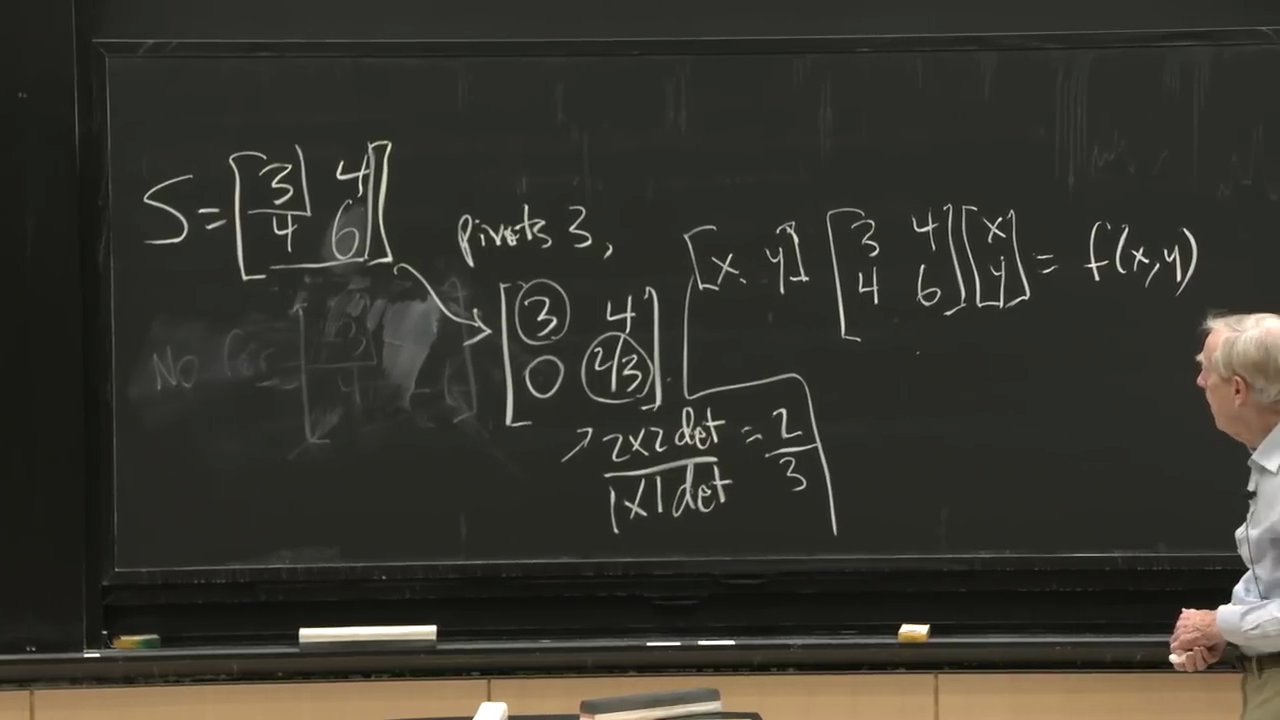 S = [3 4
4 6]
pivots 3,
[3 4
0 2/3]
2x2 det / 1x1 det = 2/3
[x y] [3 4
4 6] [x
y] = f(x,y)
No for [3
4 -6]